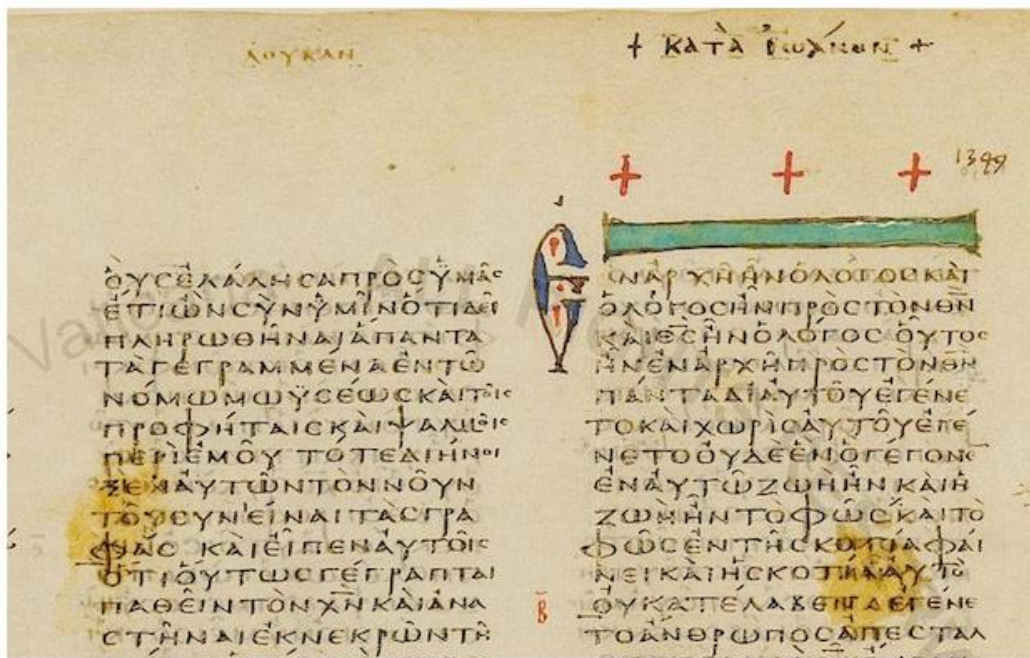 ΛΟΥΚΑΝ
+ ΚΑΤΑ ΙΩΑΝΟΝ +
1349
ΟΥϹΕΛΑΛΗϹΑΠΡΟϹΫΜΑϹ
ΕΤΙΩΝϹΥΝΫΜΙΝΟΤΙΔΕΙ
ΠΛΗΡΩΘΗΝΑΙΑΠΑΝΤΑ
ΤΑΓΕΓΡΑΜΜΕΝΑΕΝΤΩ
ΝΟΜΩΜΩΫϹΕΩϹΚΑΙΤΟΙϹ
ΠΡΟΦΗΤΑΙϹΚΑΙΨΑΛΜΟΙϹ
ΠΕΡΙΕΜΟΥ ΤΟΤΕΔΙΗΝΟΙ
ΞΕΝΑΥΤΩΝΤΟΝΝΟΥΝ
ΤΟΥϹΥΝΕΙΝΑΙΤΑϹΓΡΑ
ΦΑϹ ΚΑΙΕΙΠΕΝΑΥΤΟΙϹ
ΟΤΙΟΥΤΩϹΓΕΓΡΑΠΤΑΙ
ΠΑΘΕΙΝΤΟΝΧ̅Ν̅ΚΑΙΑΝΑ
ϹΤΗΝΑΙΕΚΝΕΚΡΩΝΤΗ
ΕΝΑΡΧΗΗΝΟΛΟΓΟϹΚΑΙ
ΟΛΟΓΟϹΗΝΠΡΟϹΤΟΝΘ̅Ν̅
ΚΑΙΘ̅Ϲ̅ΗΝΟΛΟΓΟϹ ΟΥΤΟϹ
ΗΝΕΝΑΡΧΗΠΡΟϹΤΟΝΘ̅Ν̅
ΠΑΝΤΑΔΙΑΥΤΟΥΕΓΕΝΕ
ΤΟΚΑΙΧΩΡΙϹΑΥΤΟΥΕΓΕ
ΝΕΤΟΟΥΔΕΕΝΟΓΕΓΟΝΕ
ΕΝΑΥΤΩΖΩΗΗΝΚΑΙΗ
ΖΩΗΗΝΤΟΦΩϹΚΑΙΤΟ
ΦΩϹΕΝΤΗϹΚΟΤΙΑΦΑΙ
ΝΕΙΚΑΙΗϹΚΟΤΙΑΑΥΤΟ
Β̅
ΟΥΚΑΤΕΛΑΒΕΝ ΕΓΕΝΕ
ΤΟΑΝΘΡΩΠΟϹΑΠΕϹΤΑΛ